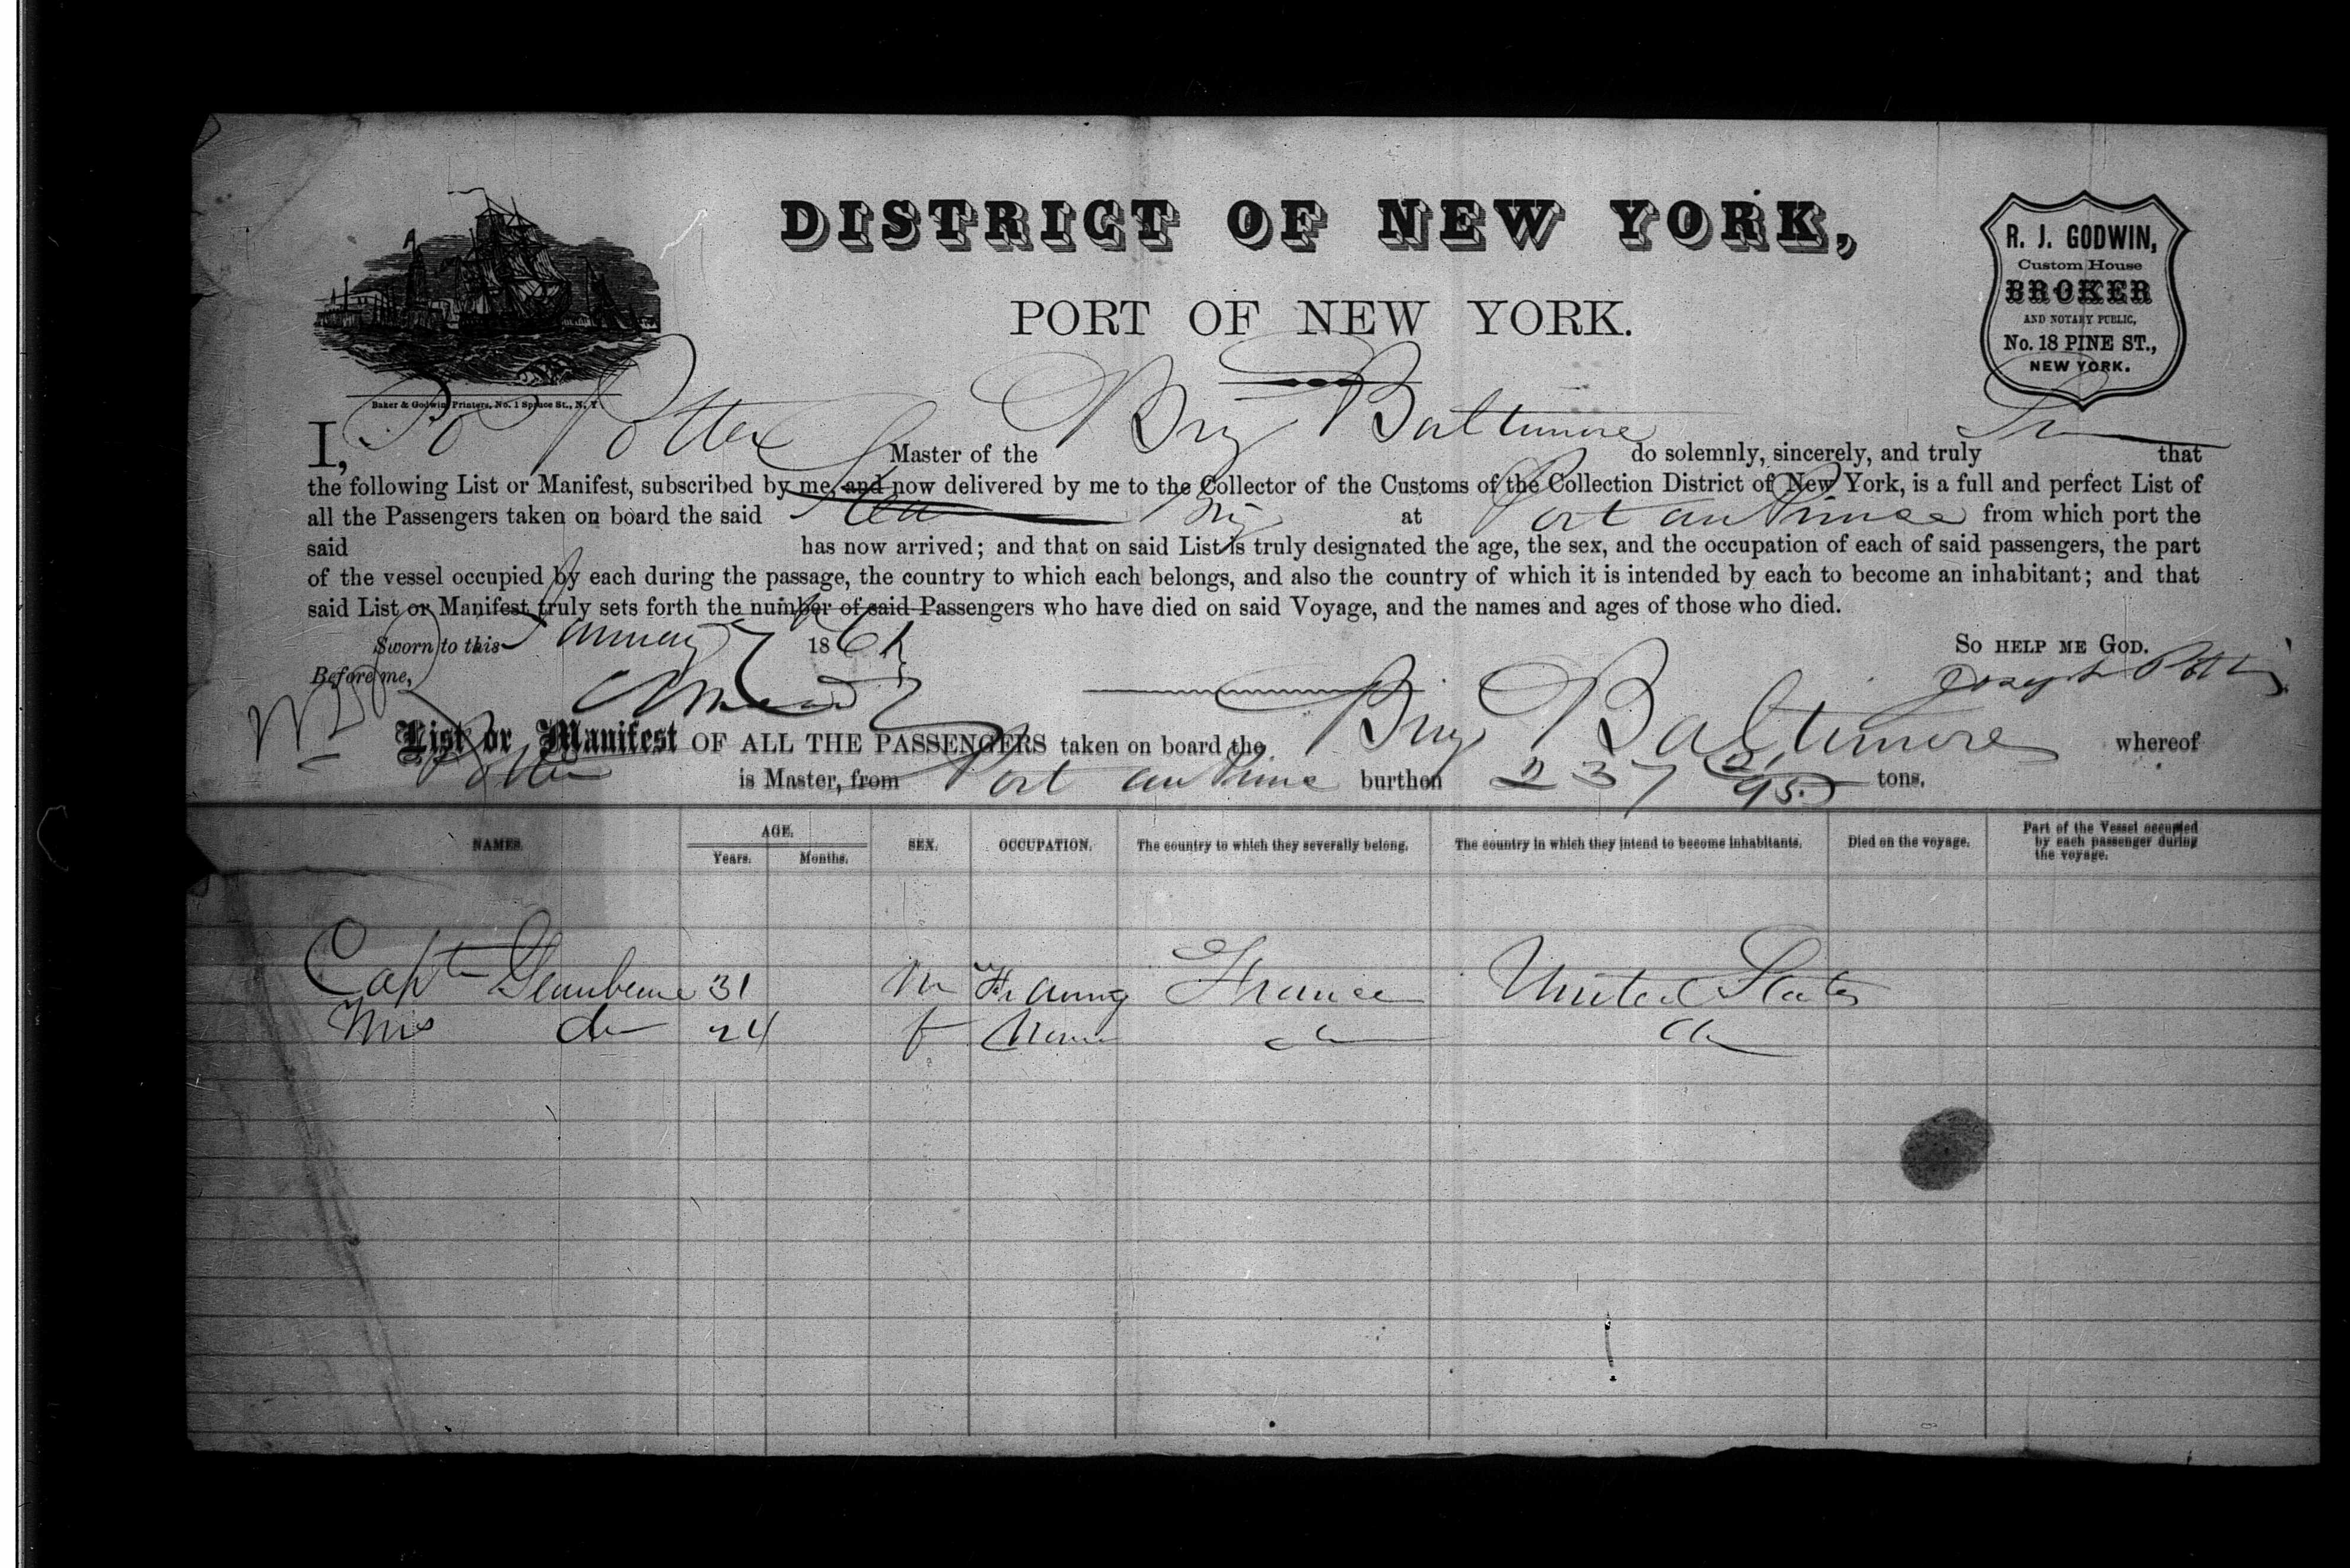 DISTRICT OF NEW YORK,
PORT OF NEW YORK.
R. J. GODWIN,
Custom House
BROKER
AND NOTARY PUBLIC,
No. 18 PINE ST.,
NEW YORK.
Baker & Godwin, Printers, No. 1 Spruce St., N. Y
I, Potter Master of the Brig Baltimore do solemnly, sincerely, and truly that
the following List or Manifest, subscribed by me, and now delivered by me to the Collector of the Customs of the Collection District of New York, is a full and perfect List of
all the Passengers taken on board the said Brig at Port au Prince from which port the
said has now arrived; and that on said List is truly designated the age, the sex, and the occupation of each of said passengers, the part
of the vessel occupied by each during the passage, the country to which each belongs, and also the country of which it is intended by each to become an inhabitant; and that
said List or Manifest truly sets forth the number of said Passengers who have died on said Voyage, and the names and ages of those who died.
Sworn to this January 1861 So HELP ME GOD.
Before me, Joseph Potter
List or Manifest OF ALL THE PASSENGERS taken on board the Brig Baltimore whereof
Potter is Master, from Port au Prince burthen 237 /95 tons.
NAMES. AGE. Years. Months. SEX. OCCUPATION. The country to which they severally belong. The country in which they intend to become inhabitants. Died on the voyage. Part of the Vessel occupied by each passenger during the voyage.
Captn 31 M France United States
Mrs do 24 f None do do